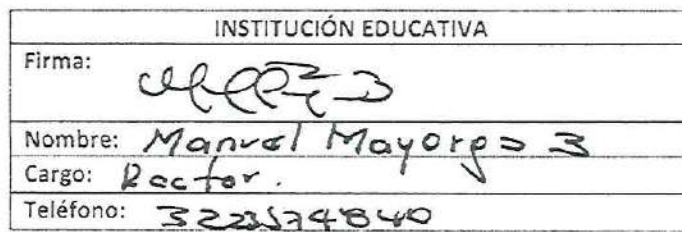 INSTITUCIÓN EDUCATIVA
Firma:
Nombre: Manuel Mayorga B
Cargo: Rector.
Teléfono: 3223574840